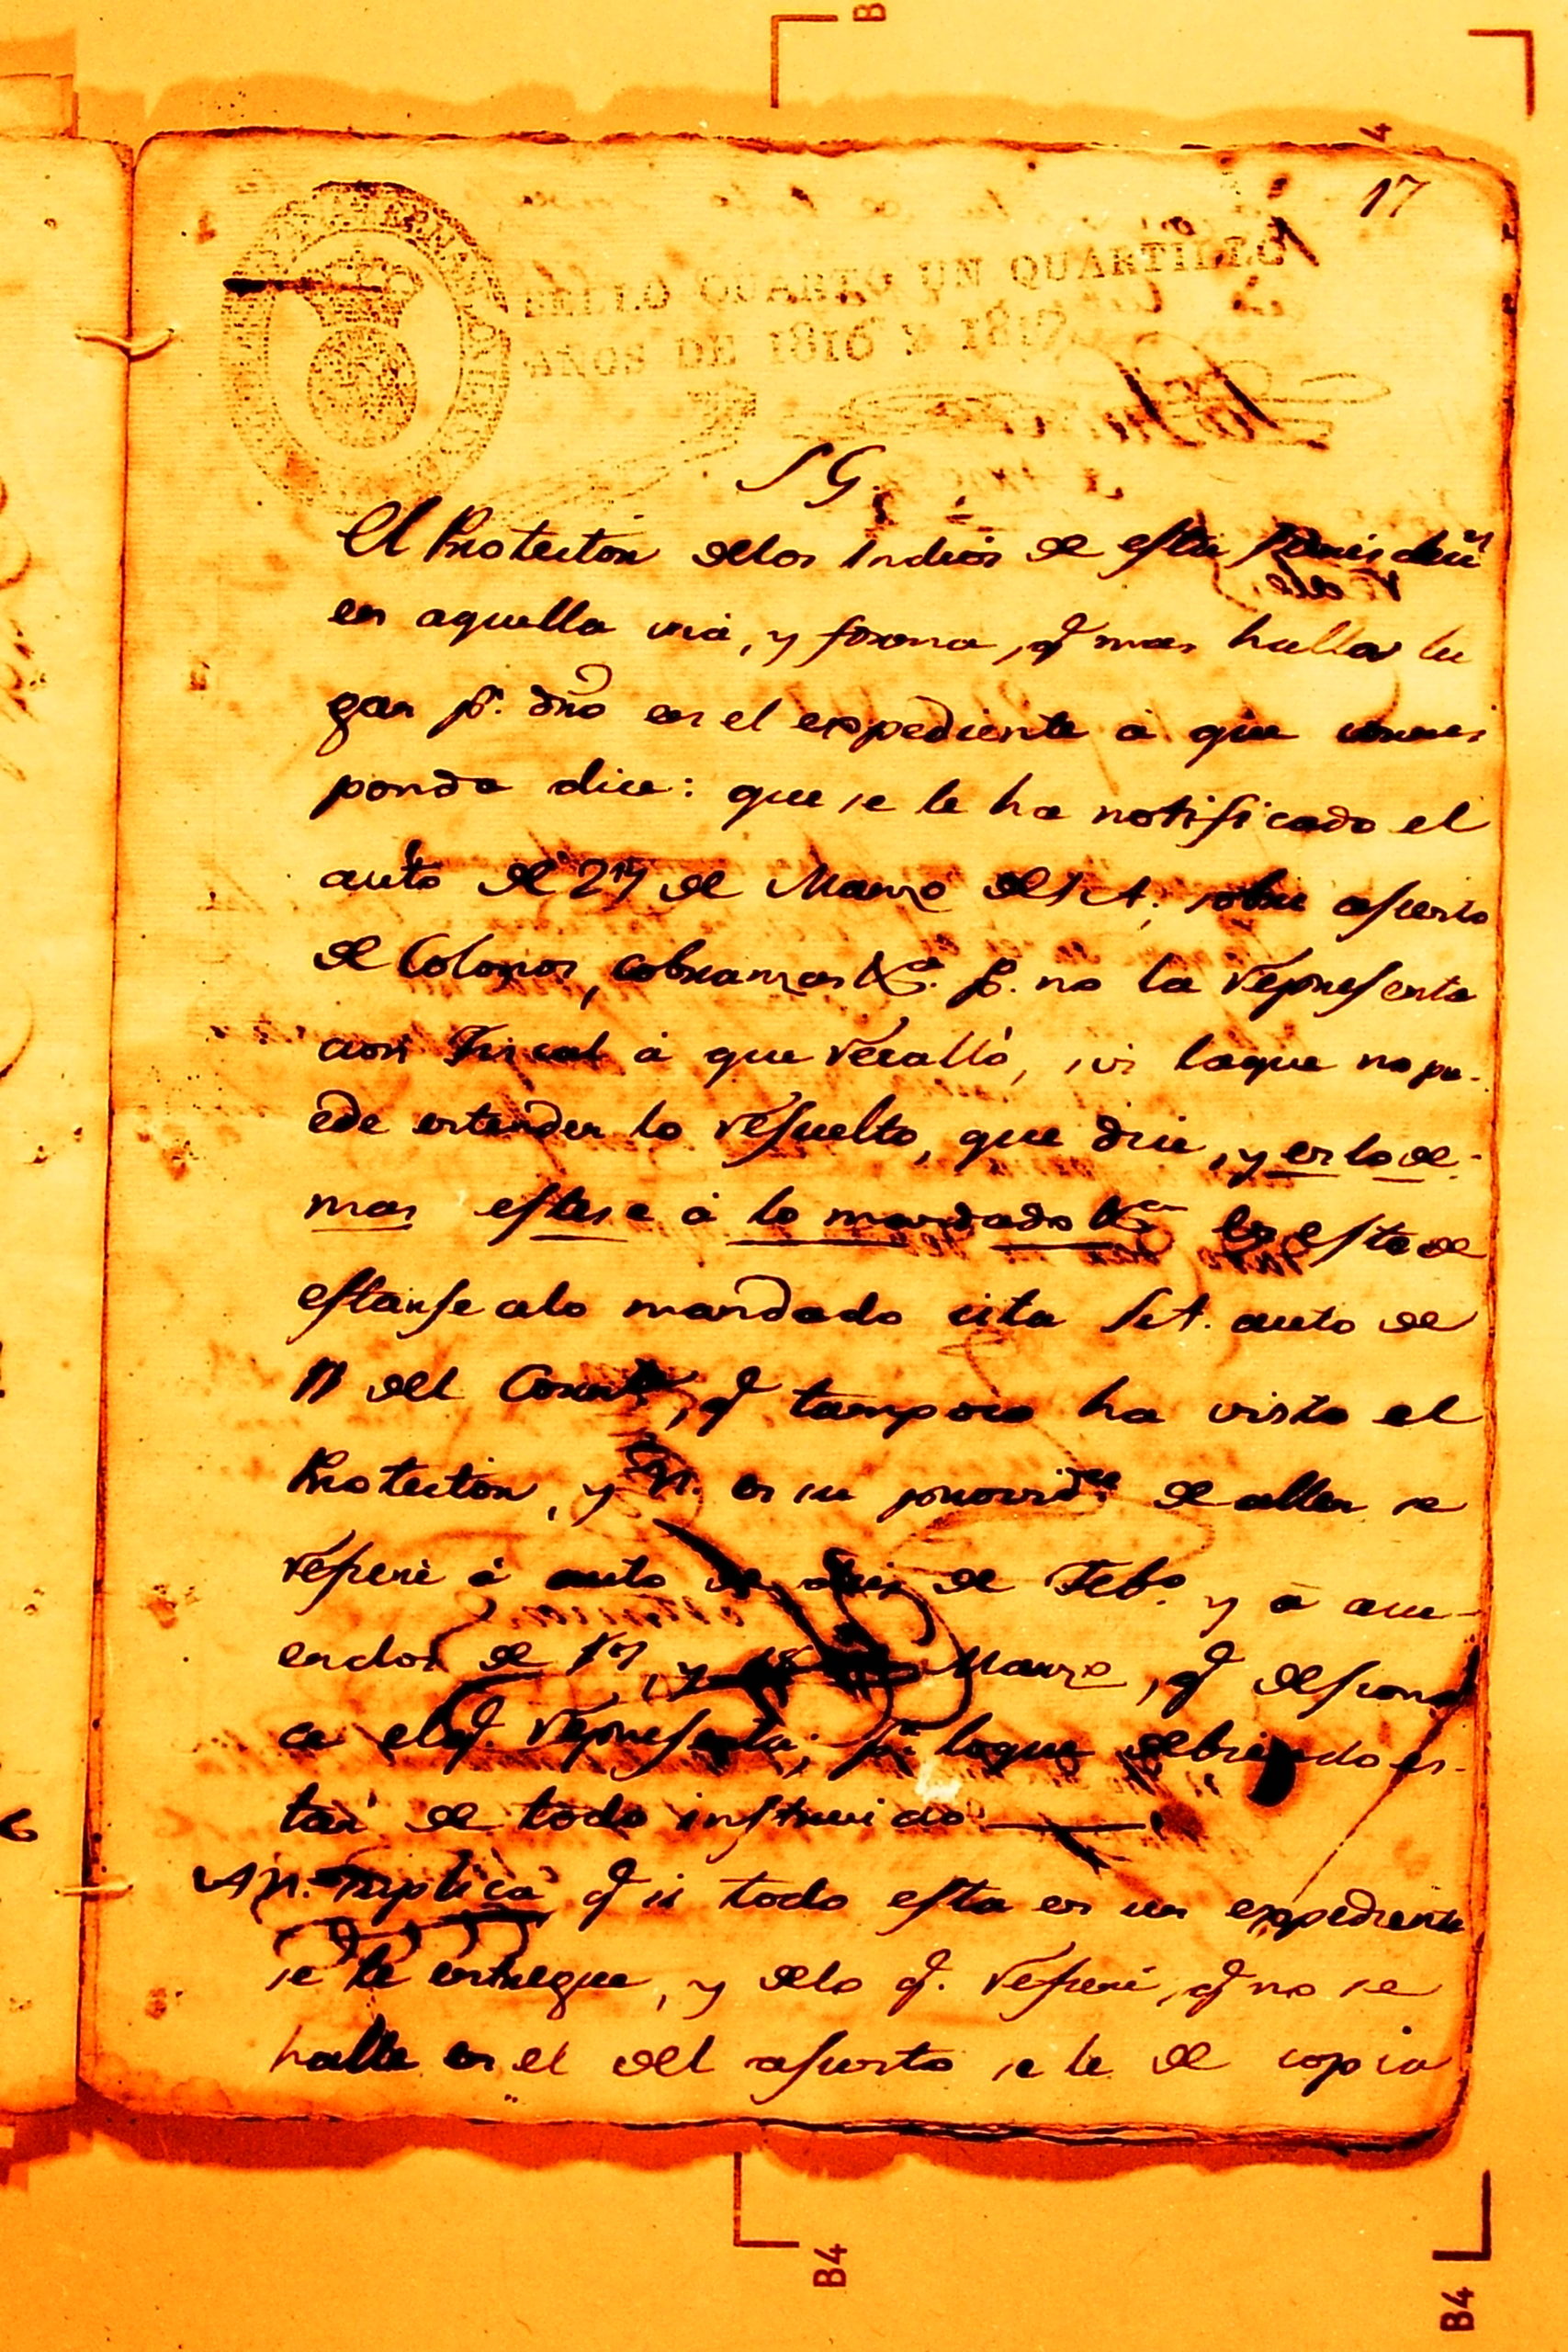 B
4
17
SELLO QUARTO UN QUARTILLO
AÑOS DE 1816 Y 1818
S G.
El Protector delos Indios de esta
en aquella via, y forma, q̃ mas halla lu
gar pr. dro en el expediente á que corres
ponda dice: que se le ha notificado el
auto de 27 de Marzo del st. sobre asunto
de Colonos, cobranzas &a. p. no la representa
cion Fiscal á que recalló, sin laque no pu-
ede entender lo resuelto, que dice, y en lo de-
mas estese á lo mandado &a En este de
estarse alo mandado cita auto de
11 del Corrte, q̃ tampoco ha visto el
Protector, y en su provide de aller se
refiere á auto de seis de Febo. y á acu-
erdos de 17, y Marzo, q̃ descono
ce el q̃. representa; pr. loque debiendo es-
tar de todo instruido
A N. suplica q̃ si todo esta en un expediente
se le entregue, y delo q̃. refiere, q̃ no se
halle en el del asunto se le de copia
B4
B4